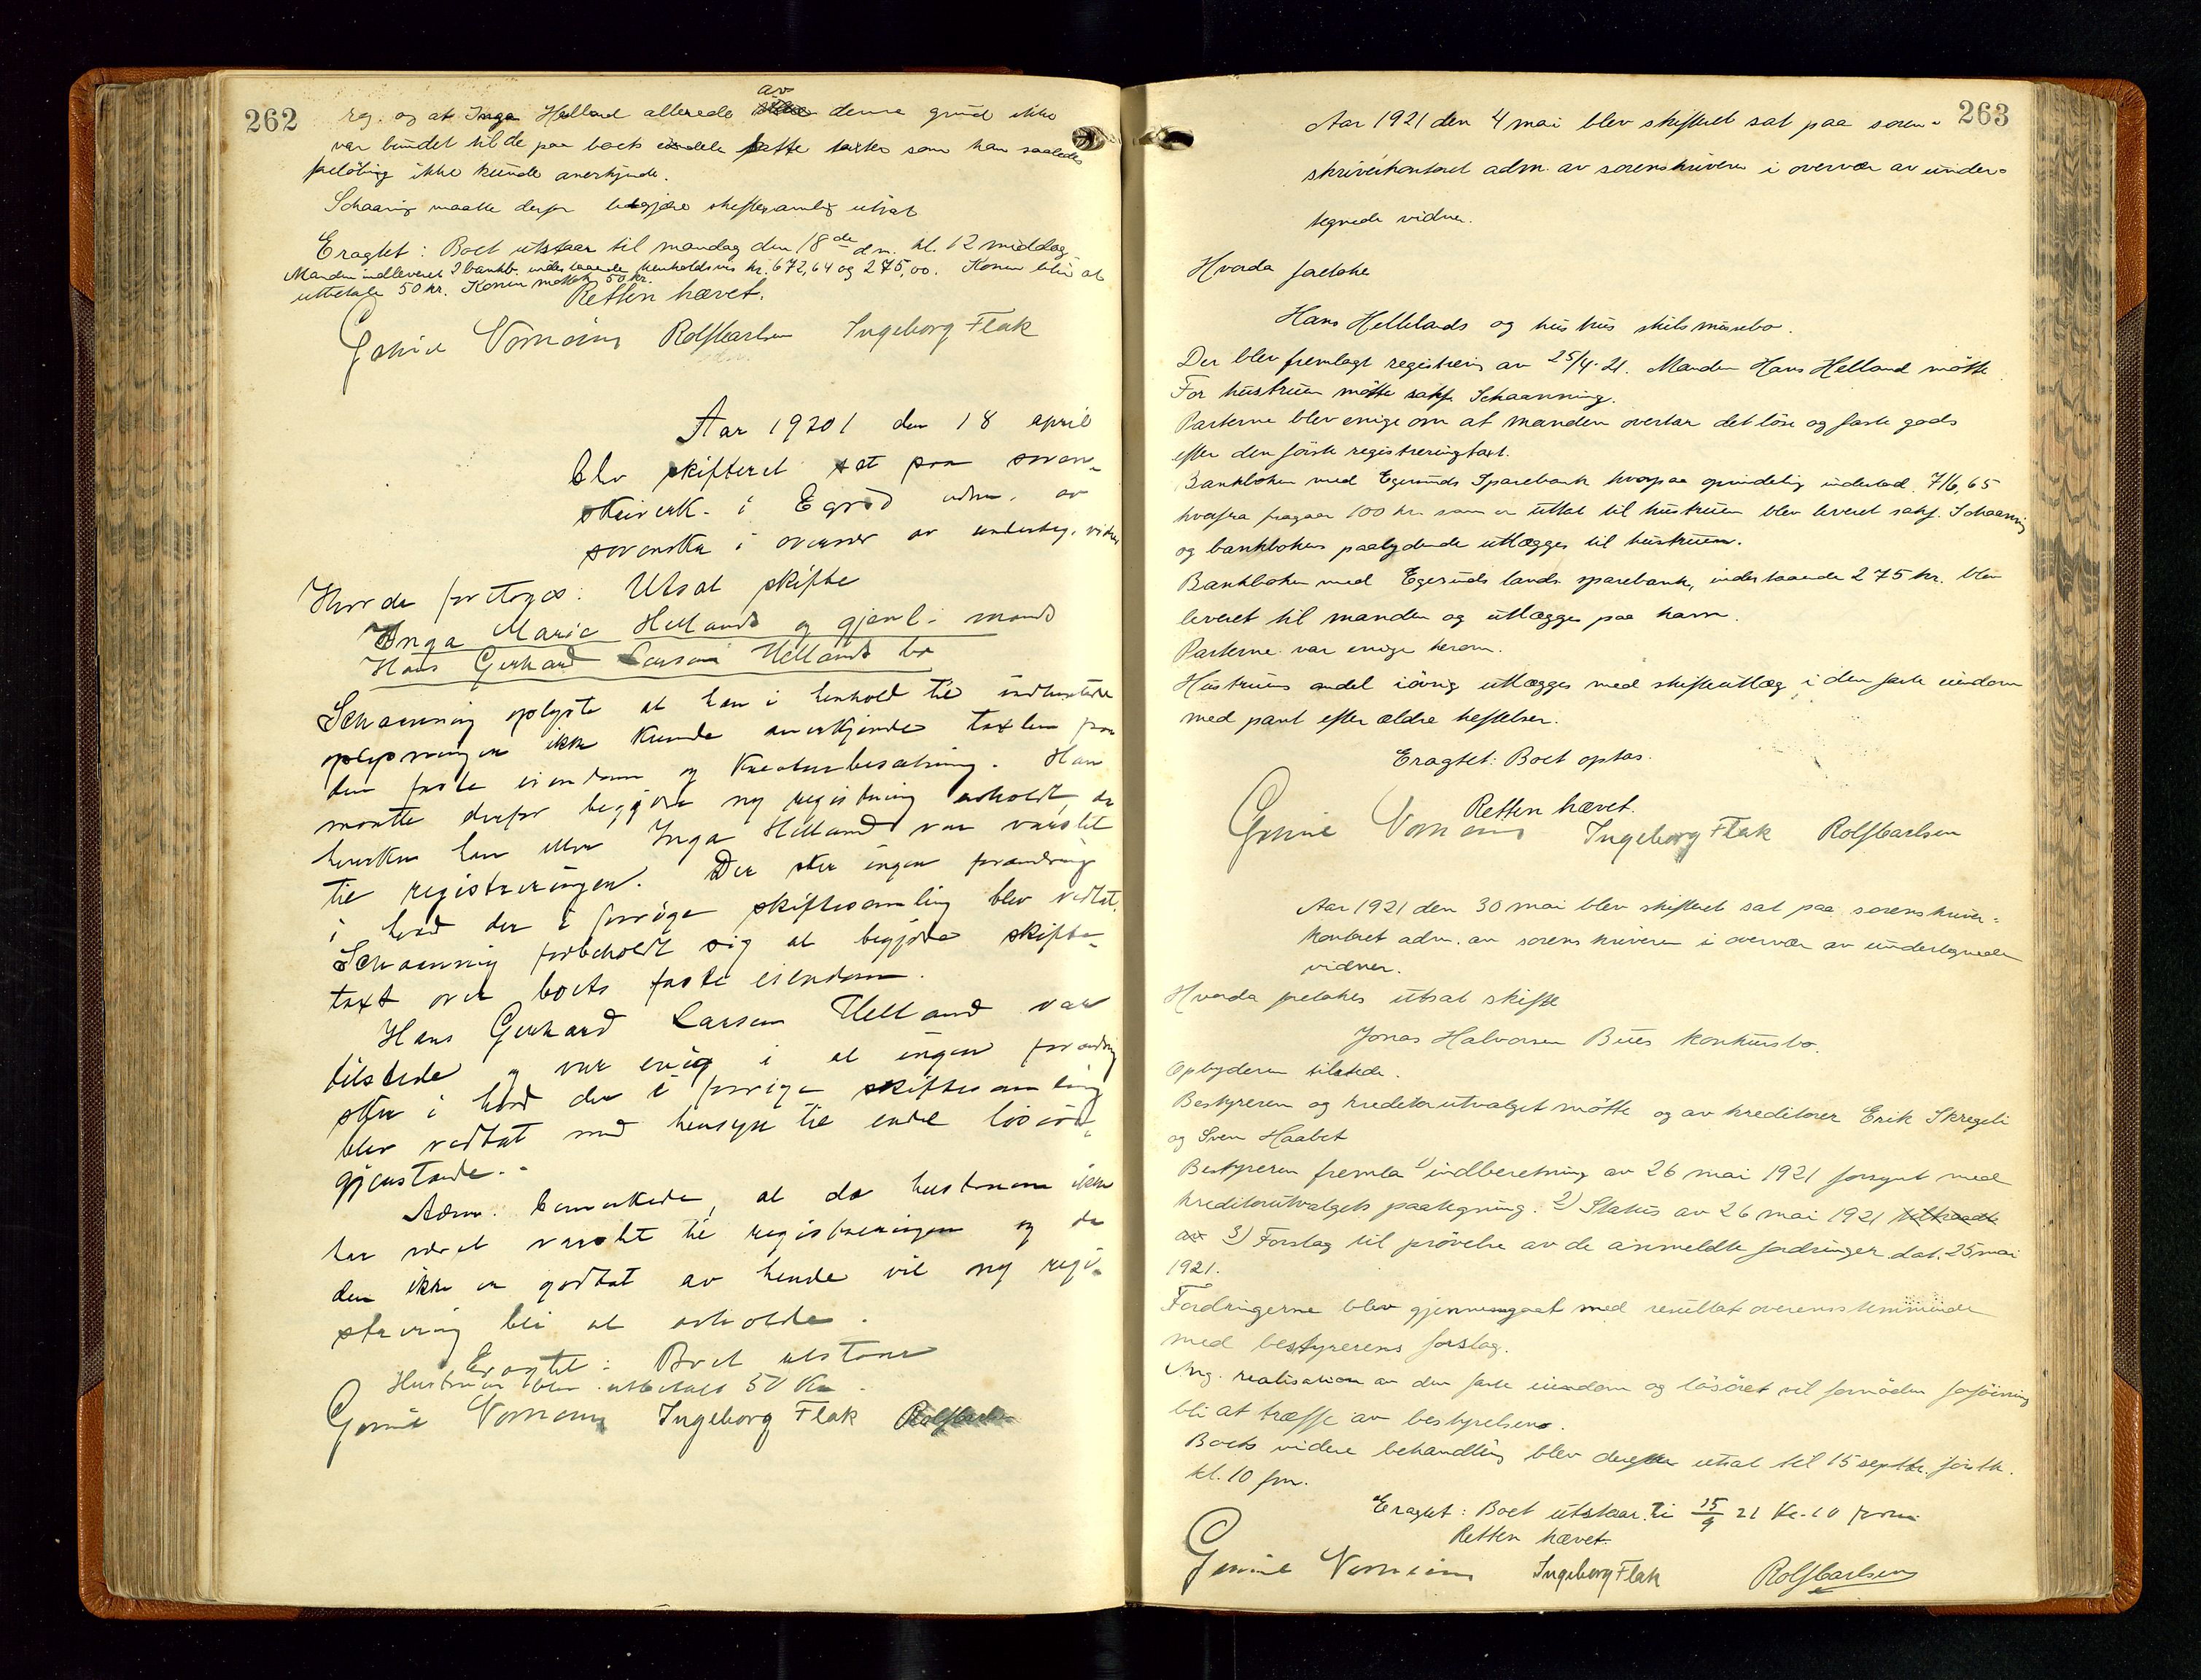 262
reg. og at Inga Helland allerede av denne grund ikke
var bundet til de paa boets eiendele satte takster som han saaledes
foreløbig ikke kunde anerkjende.
Schaaning maatte derfor begjære skiftesamling utsat
Eragtet: Boet utstaar til mandag den 18de dm. kl. 12 middag
Manden indleveret 2 bankb. indestaaende henholdsvis kr. 672,64 og 275,00. Konen blir at
utbetale 50 kr. Konen mottok 50 kr.
Retten hævet.
Rolf Carlsen Ingeborg Flak
Aar 19201 den 18 april
blev skifteret sat paa soren-
skriverk. i Egrsd adm. av
sorenskr. i overvær av underteg. vidner
Hvorda foretoges: Utsat skifte
Inga Marie Hellands og gjenl. mands
Hans Gerhard Larsen Hellands bo
Schaanning oplyste at han i henhold til indhentede
oplysninger ikke kunde anerkjende taxten paa
den faste eiendom og kreaturbesætning. Han
maatte derfor begjære ny registrering avholdt, da
hverken han eller Inga Helland var varslet
til registreringen. Der sker ingen forandring
i hvad der i forrige skiftesamling blev vedtat.
Schaanning forbeholdt sig at begjære skifte-
taxt over boets faste eiendom.
Hans Gerhard Larsen Helland var
tilstede og var enig i at ingen forandring
sker i hvad der i forrige skiftesamling
blev vedtat med hensyn til endel løsøre-
gjenstande.-
Adm. bemerkede, at da hustruen ikke
har været varslet til registreringen og da
den ikke er godtat av hende vil ny regi-
strering bli at avholde.
Eragtet: Boet utstaar
Hustruen blev utbetalt 50 Kr.
Ingeborg Flak Rolf Carlsen
263
Aar 1921 den 4 mai blev skifteret sat paa soren-
skriverkontoret adm. av sorenskriveren i overvær av under-
tegnede vidner.
Hvorda foretokes
Hans Hellelands og hustrus skilsmissebo.
Der blev fremlagt registrering av 25/4-21. Manden Hans Helland møtte
For hustruen møtte sakf. Schaanning.
Parterne blev enige om at manden overtar det løse og faste gods
efter den første registreringstaxt.
Bankboken med Egersunds Sparebank hvorpaa oprindelig indestod 716,65
hvorfra fragaar 100 kr. som er uttat til hustruen blev leveret sakf. Schaanning
og bankbokens paalydende utlægges til hustruen.
Bankboken med Egersunds lands sparebank, indestaaende 275 kr. blev
leveret til manden og utlægges paa ham.
Parterne var enige herom.
Hustruens andel iøvrig utlægges med skifteutlæg i den faste eiendom
med pant efter ældre heftelser.
Eragtet: Boet optas.
Retten hævet.
Ingeborg Flak Rolf Carlsen
Aar 1921 den 30 mai blev skifteret sat paa sorenskriver-
kontoret adm. av sorenskriveren i overvær av undertegnede
vidner.
Hvorda foretokes utsat skifte
Jonas Halvorsen Bues konkursbo.
Opbyderen tilstede.
Bestyreren og kreditorutvalget møtte og av kreditorer Erik Skregeli
og Sven Haabet
Bestyreren fremla 1) indberetning av 26 mai 1921 forsynt med
kreditorutvalgets paategning. 2) Status av 26 mai 1921
3) Forslag til prøvelse av de anmeldte fordringer dat. 25 mai
1921.
Fordringerne blev gjennemgaat med resultat overensstemmende
med bestyrerens forslag.
Ang. realisation av den faste eiendom og løsøret vil fornøden forføining
bli at træffe av bestyrelsen.
Boets videre behandling blev derefter utsat til 15 septbr. førstk.
kl. 10 fm.
Eragtet: Boet utstaar ti 15/9 21 Kl. 10 form
Retten hævet.
Ingeborg Flak Rolf Carlsen